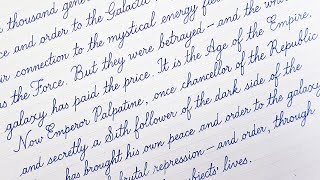 thousand gener
ce and order to the Galactic
ir connection to the mystical energy fie
as the Force. But they were betrayed – and the wh
galaxy has paid the price. It is the Age of the Empire.
Now Emperor Palpatine, once chancellor of the Republic
and secretly a Sith follower of the dark side of the
has brought his own peace and order to the galaxy
brutal repression – and order, through
subjects' lives.